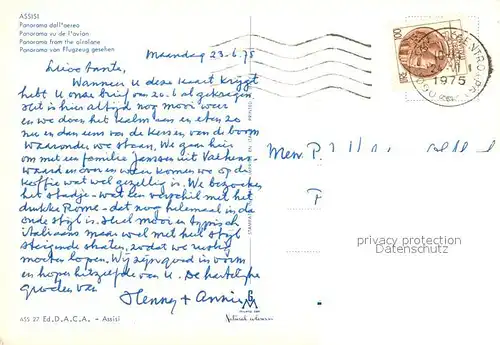 ASSISI
Panorama dall'aereo
Panorama vu de l'avion
Panorama from the airplane
Panorama von Flugzeug gesehen
Maandag 23.6.75
Lieve tante,
Wanneer U deze kaart krijgt
hebt U onze brief van 20.6 al gekregen.
Het is hier altijd nog mooi weer
en we doen het kalm aan en eten zo
nu en dan eens van de kersen van de boom
waaronder we staan. We gaan hier
om met een familie Janssens uit
waard en over en weer komen we op de
koffie wat wel gezellig is. We bezoeken
het stadje - wat een verschil met het
drukke Rome - dat nog helemaal in de
oude stijl is. Heel mooi en typisch
italiaans maar wel met heel stijl
stijgende straten, zodat we rustig
moeten lopen. Wij zijn goed in vorm
en hopen hetzelfde van U. De hartelijke
groeten van
Henny + Annie
Mevr. P.
100
1975
privacy protection
Datenschutz
ASS 27 Ed. D.A.C.A. - Assisi